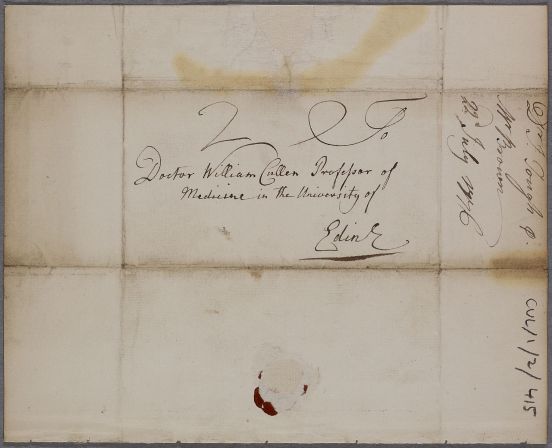 2 To
Doctor William Cullen Professor of
Medicine in the University of
Edinr
Mr Brown
July 1776
CUL/1/2/415